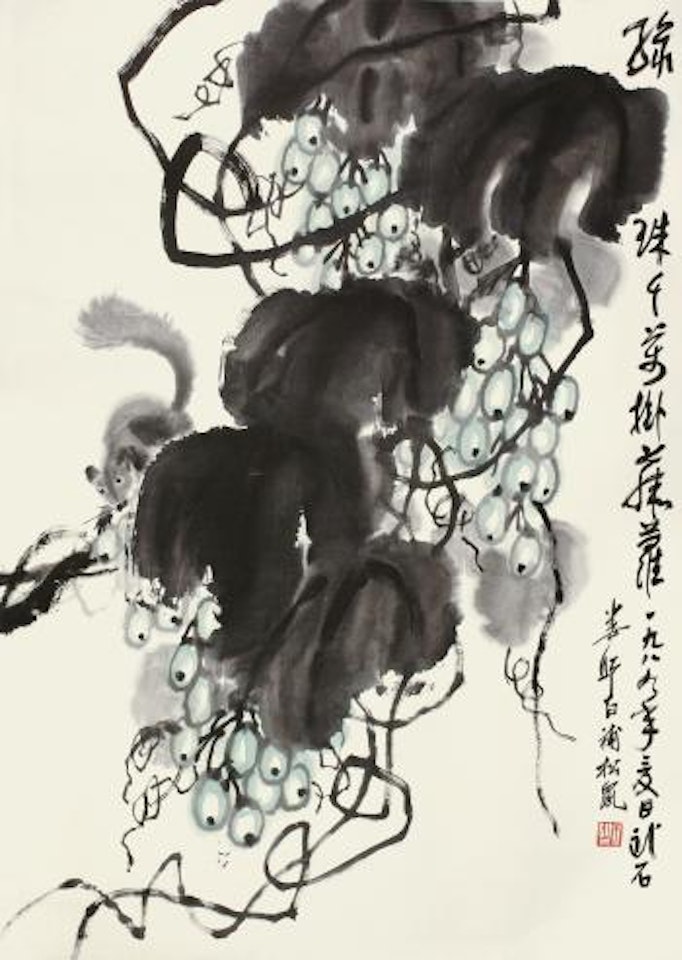 綠珠千萬掛藤蘿一九八九年夏日石
婁師白補松鼠